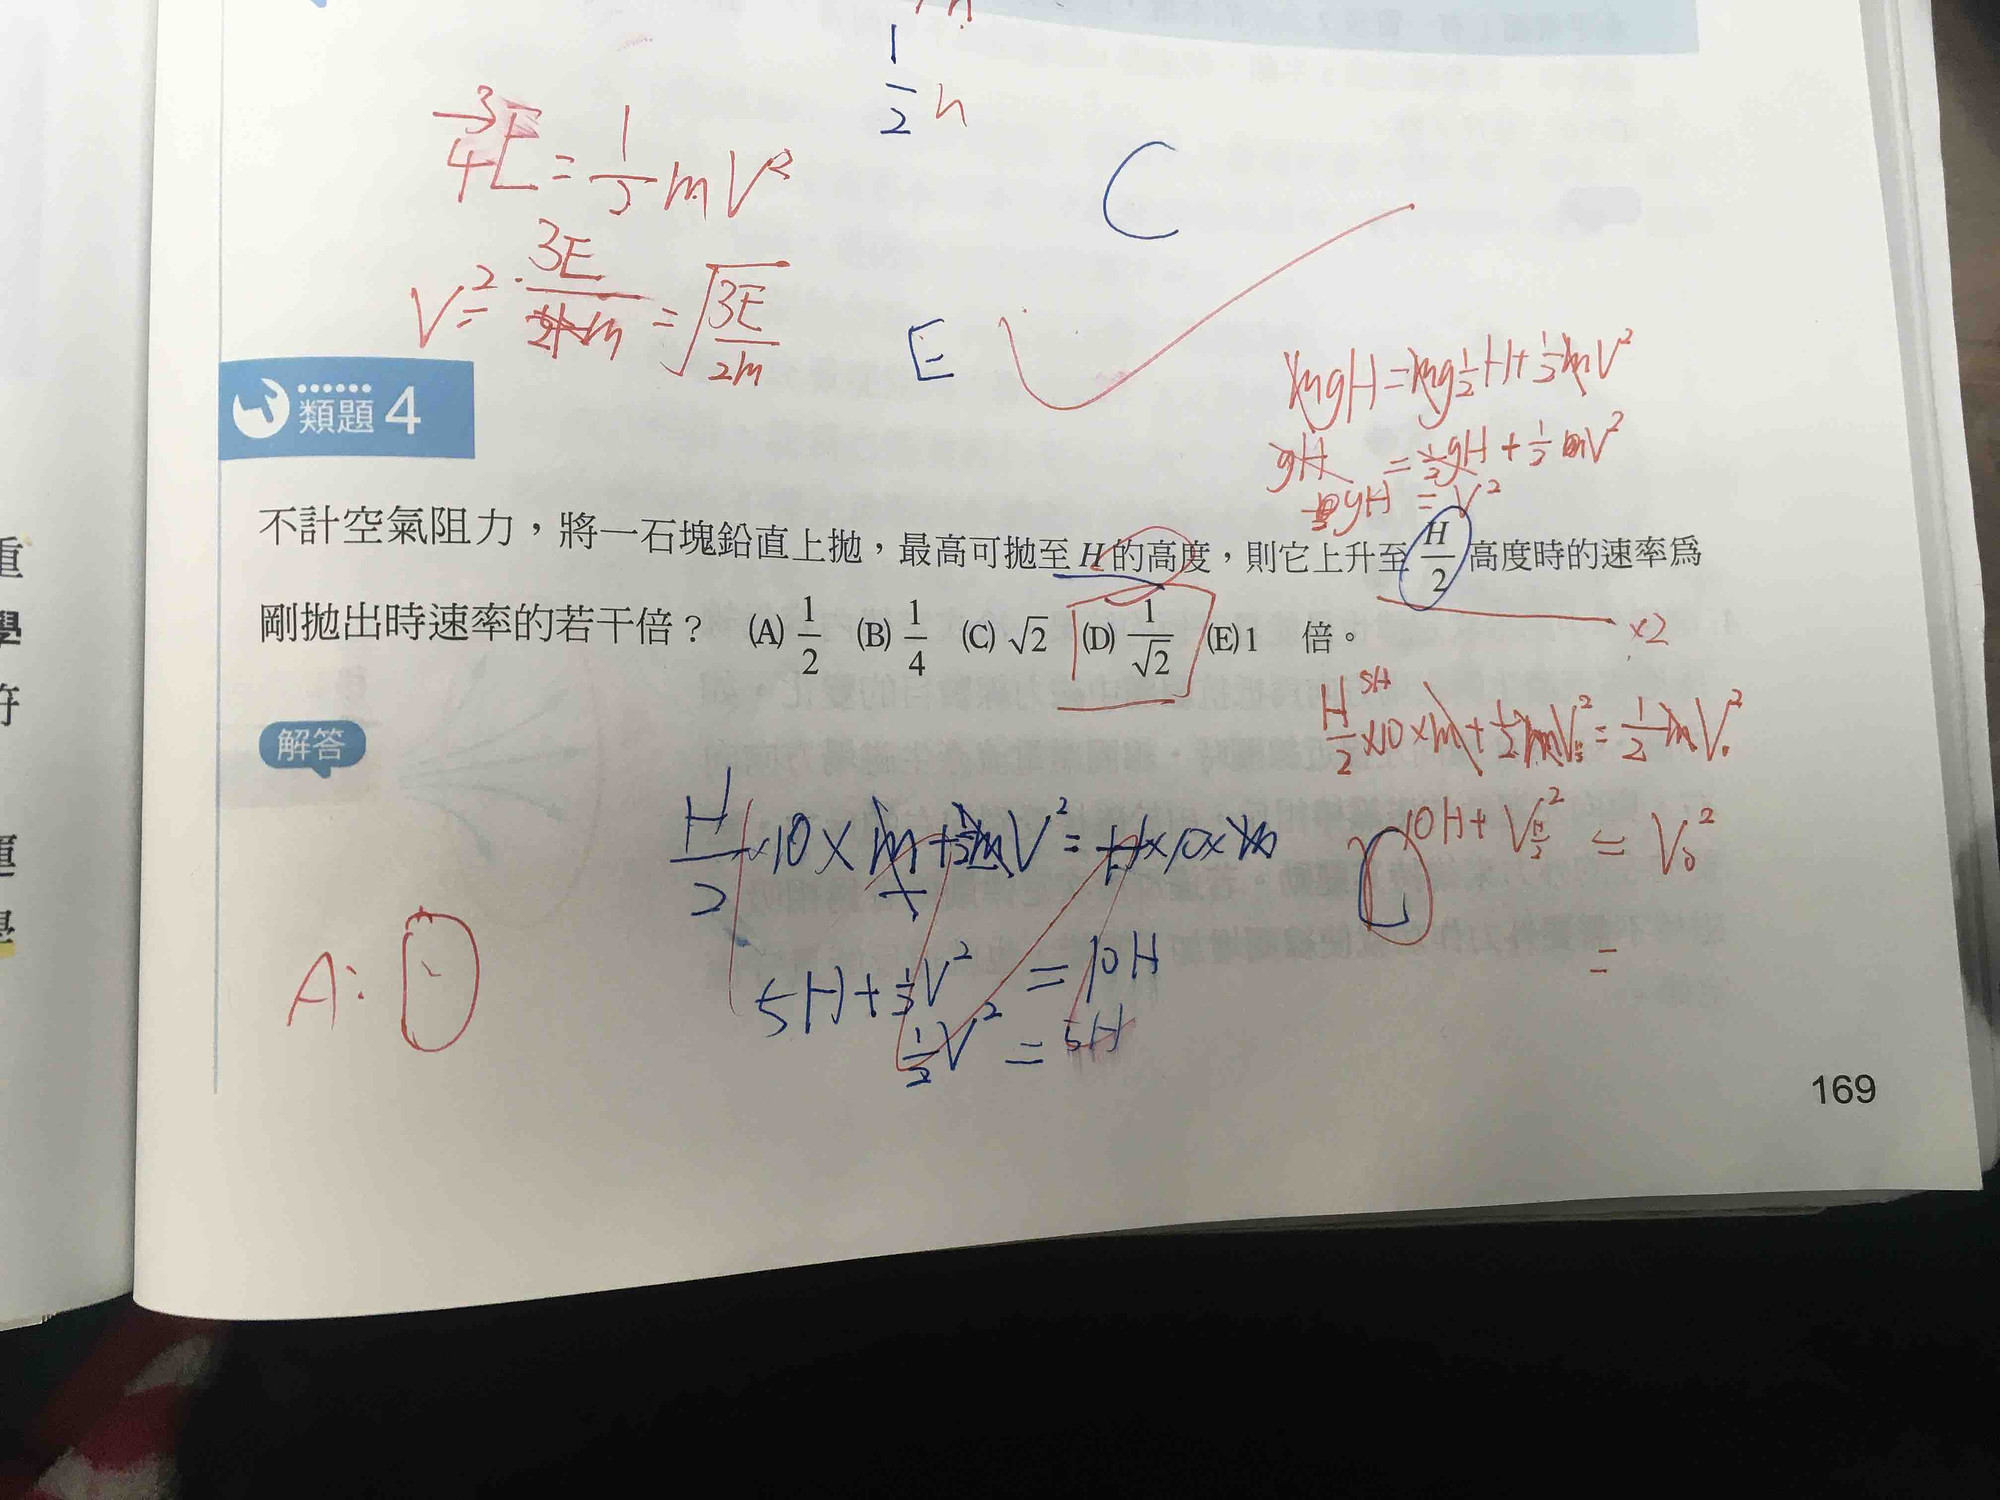 1/2 h
3/4 E = 1/2 mV²
C
V² = 3E/2m = √(3E/2m)
E
mgH = mg½H + ½mV²
類題 4
gH = ½gH + ½mV²
gH = V²
不計空氣阻力，將一石塊鉛直上拋，最高可拋至 H 的高度，則它上升至 H/2 高度時的速率為
剛拋出時速率的若干倍？ (A) 1/2 (B) 1/4 (C) √2 (D) 1/√2 (E) 1 倍。
×2
5H
H/2 ×10×m + ½mV² = ½mV₀²
解答
H/2 ×10×m + ½mV² = H×10×m
10H + V² = V₀²
5H + ½V² = 10H
=
A:
½V² = 5H
169
重
學
符
運